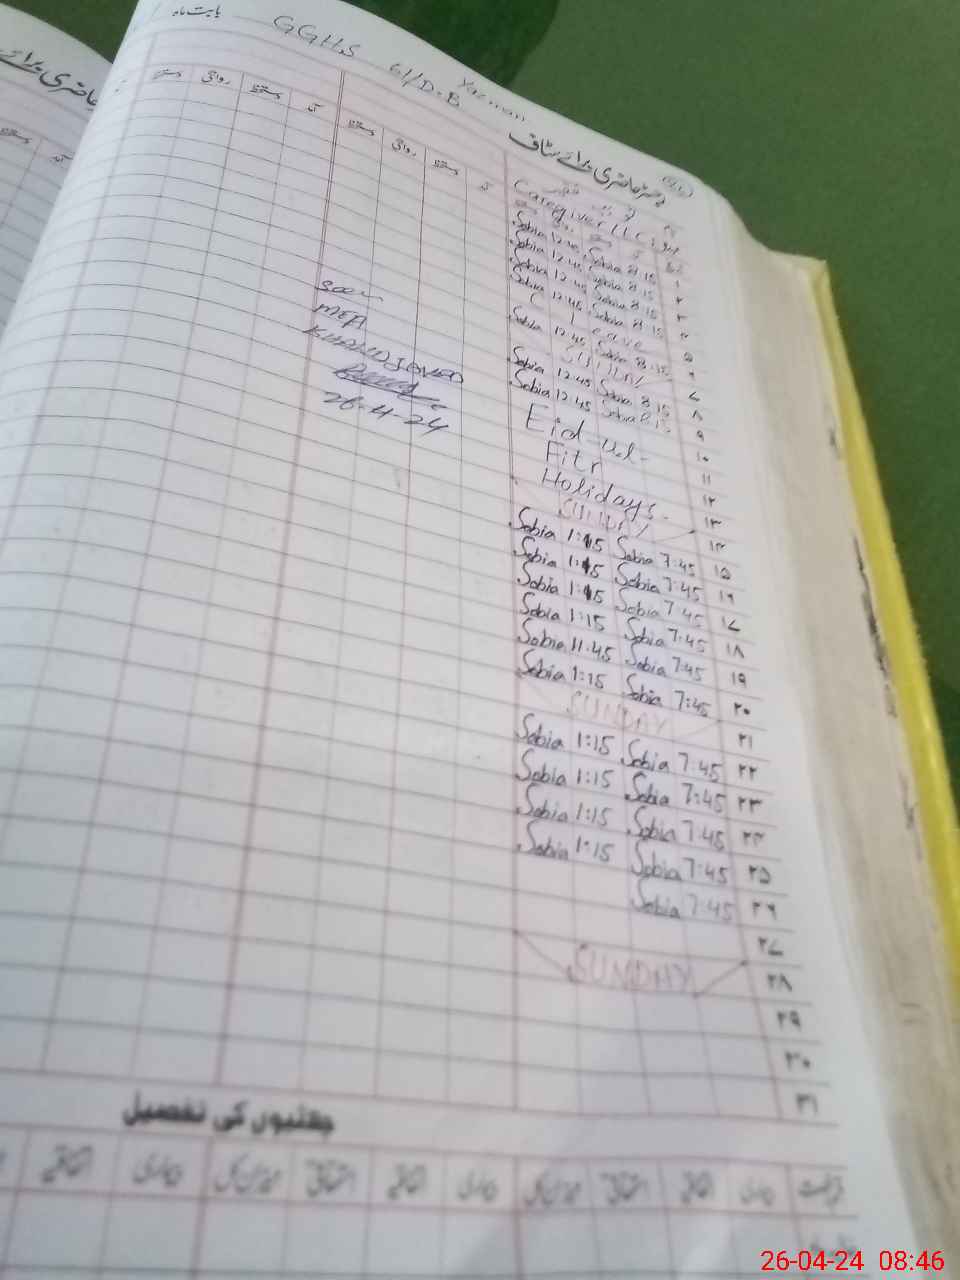 بابت ماہ
GGHS 61/D.B Yazman
دفتر حاضری برائے سٹاف
آمد دستخط روانگی دستخط آمد دستخط روانگی دستخط
Sobia 8:15 ۱
Sobia 12:45 Sobia 8:15 ۲
Sobia 12:45 Sobia 8:15 ۳
Sobia 12:45 Sobia 8:15 ۴
Leave ۵
Sobia 12:45 Sobia 8:15 ۶
SUNDAY ۷
Sobia 12:45 Sobia 8:15 ۸
Sobia 12:45 Sobia ۹
Eid-ul- ۱۰
Fitr ۱۱
Holidays. ۱۲
۱۳
SUNDAY ۱۴
Sobia 1:15 Sobia 7:45 ۱۵
Sobia 1:15 Sobia 7:45 ۱۶
Sobia 1:15 Sobia 7:45 ۱۷
Sobia 1:15 Sobia 7:45 ۱۸
Sobia 11:45 Sobia 7:45 ۱۹
Sobia 1:15 Sobia 7:45 ۲۰
SUNDAY ۲۱
Sobia 1:15 Sobia 7:45 ۲۲
Sobia 1:15 Sobia 7:45 ۲۳
Sobia 1:15 Sobia 7:45 ۲۴
Sobia 1:15 Sobia 7:45 ۲۵
Sobia 7:45 ۲۶
۲۷
SUNDAY ۲۸
۲۹
۳۰
۳۱
Seen
MEA
KHALID JAVED
26-4-24
چھٹیوں کی تفصیل
بیماری اتفاقیہ استحقاقی میڈیکل بیماری اتفاقیہ استحقاقی میڈیکل بیماری اتفاقیہ
26-04-24 08:46